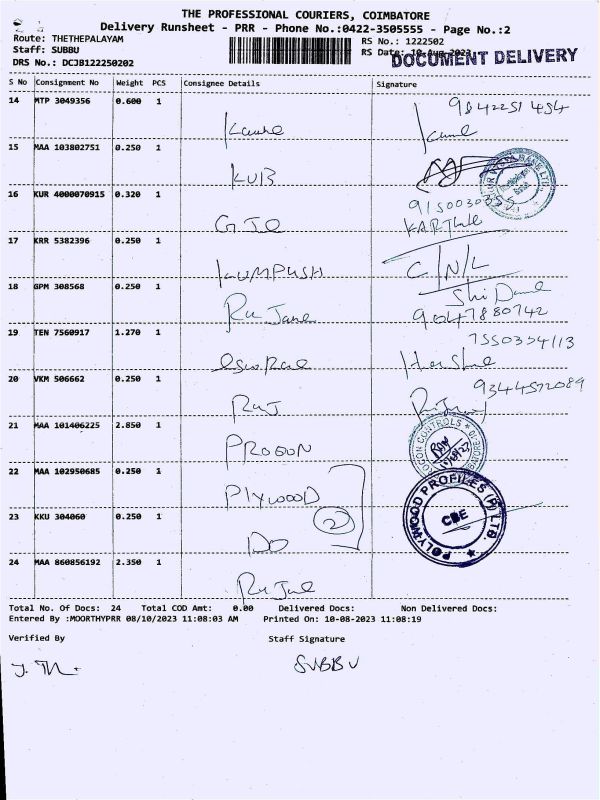 THE PROFESSIONAL COURIERS, COIMBATORE
Delivery Runsheet - PRR - Phone No.:0422-3505555 - Page No.:2
Route: THETHEPALAYAM
RS No.: 1222502
Staff: SUBBU
RS Date: 10-Aug-2023
DOCUMENT DELIVERY
DRS No.: DCJB122250202
S No Consignment No Weight PCS Consignee Details Signature
14 MTP 3049356 0.600 1
9842251454
15 MAA 103802751 0.250 1
KUB
16 KUR 4000070915 0.320 1
9150030355
17 KRR 5382396 0.250 1
C/N/L
18 GPM 308568 0.250 1
9047880742
19 TEN 7560917 1.270 1
7550354113
20 VKM 506662 0.250 1
9344572089
21 MAA 101406225 2.850 1
PROGON
22 MAA 102950685 0.250 1
PLYWOOD
23 KKU 304060 0.250 1
2
DO
POLYWOOD PROFILES (P) LTD.
CBE
24 MAA 860856192 2.350 1
Total No. Of Docs: 24 Total COD Amt: 0.00 Delivered Docs: Non Delivered Docs:
Entered By :MOORTHYPRR 08/10/2023 11:08:03 AM Printed On: 10-08-2023 11:08:19
Verified By Staff Signature
SUBBU